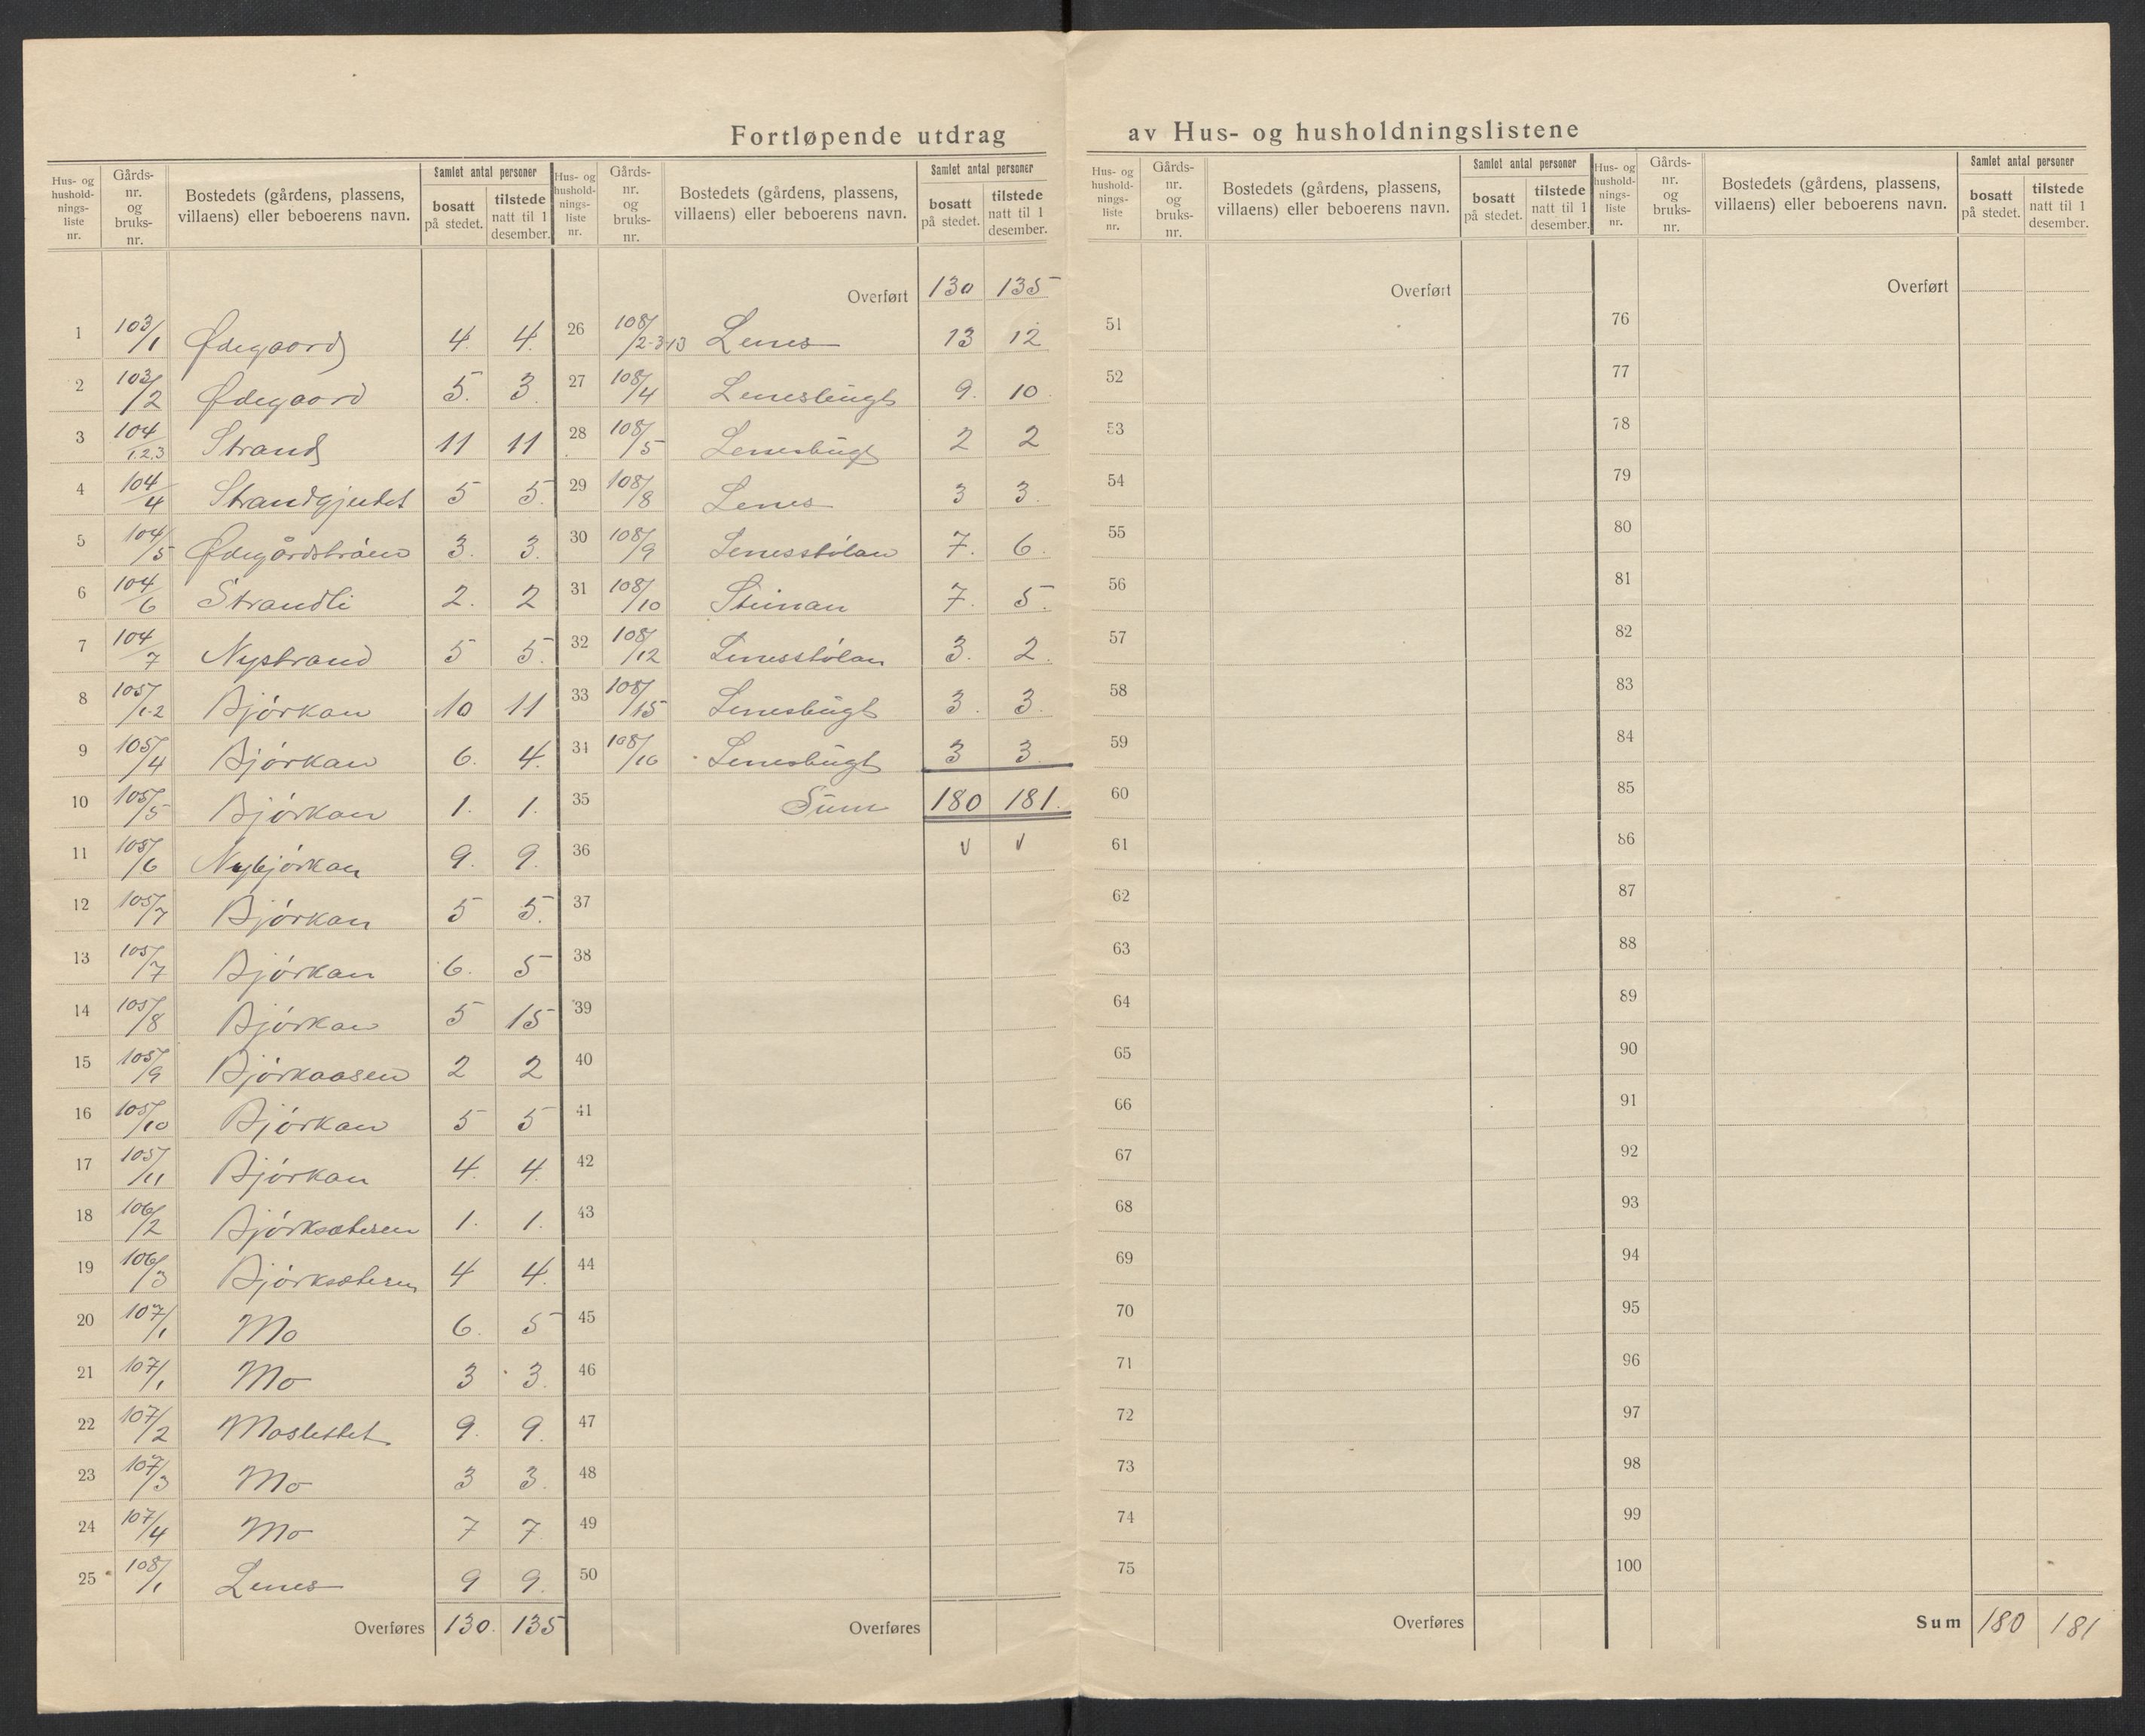 Fortløpende utdrag av Hus- og husholdningslistene
Hus- og hushold-nings-liste nr. Gårds-nr. og bruks-nr. Bostedets (gårdens, plassens, villaens) eller beboerens navn. Samlet antal personer bosatt på stedet. tilstede natt til 1 desember.
1 103/1 Ødegaard 4. 4.
2 103/2 Ødegaard 5. 3.
3 104/1.2.3 Strand 11 11
4 104/4 Strandgjerdet 5 5.
5 104/5 3. 3.
6 104/6 Strandli 2. 2
7 104/7 Nystrand 5 5.
8 105/1-2 Bjórkan 10 11
9 105/4 Bjórkan 6. 4.
10 105/5 Bjórkan 1. 1.
11 105/6 Nybjórkan 9. 9.
12 105/7 Bjórkan 5 5.
13 105/7 Bjórkan 6. 5
14 105/8 Bjórkan 5 15
15 105/9 Bjórkaasen 2 2
16 105/10 Bjórkan 5 5
17 105/11 Bjórkan 4. 4.
18 106/2 Bjórksæteren 1. 1.
19 106/3 Bjórksæteren 4 4.
20 107/1 Mo 6. 5
21 107/1 Mo 3 3.
22 107/2 Moslettet 9. 9.
23 107/3 Mo 3 3.
24 107/4 Mo 7 7.
25 108/1 Lenes 9 9.
Overføres 130. 135
Hus- og hushold-nings-liste nr. Gårds-nr. og bruks-nr. Bostedets (gårdens, plassens, villaens) eller beboerens navn. Samlet antal personer bosatt på stedet. tilstede natt til 1 desember.
Overført 130 135
26 108/2-3-13 Lenes 13 12
27 108/4 Lenesbugt 9. 10.
28 108/5 Lenesbugt 2 2
29 108/8 Lenes 3 3.
30 108/9 Lenesstólan 7. 6.
31 108/10 Steinan 7. 5.
32 108/12 Lenesstólan 3. 2.
33 108/15 Lenesbugt 3. 3.
34 108/16 Lenesbugt 3 3.
35 Sum 180 181.
36 v v
37
38
39
40
41
42
43
44
45
46
47
48
49
50
Overføres
Hus- og hushold-nings-liste nr. Gårds-nr. og bruks-nr. Bostedets (gårdens, plassens, villaens) eller beboerens navn. Samlet antal personer bosatt på stedet. tilstede natt til 1 desember.
Overført
51
52
53
54
55
56
57
58
59
60
61
62
63
64
65
66
67
68
69
70
71
72
73
74
75
Overføres
Hus- og hushold-nings-liste nr. Gårds-nr. og bruks-nr. Bostedets (gårdens, plassens, villaens) eller beboerens navn. Samlet antal personer bosatt på stedet. tilstede natt til 1 desember.
Overført
76
77
78
79
80
81
82
83
84
85
86
87
88
89
90
91
92
93
94
95
96
97
98
99
100
Sum 180 181